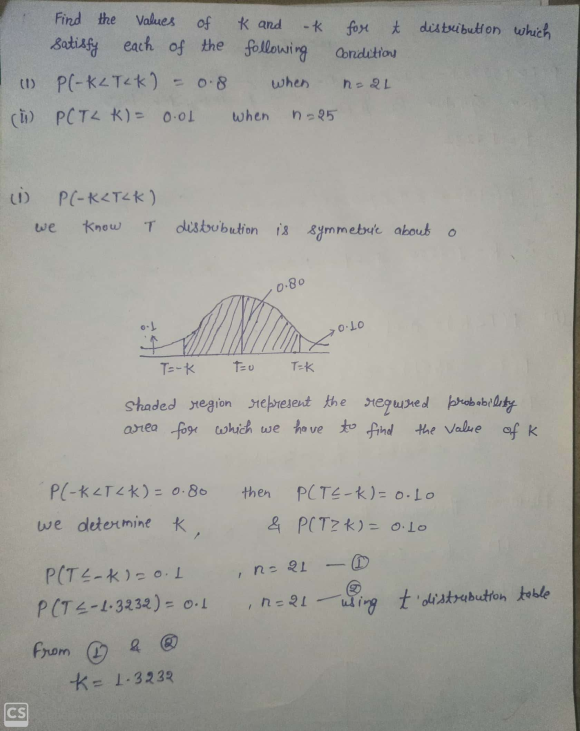 Find the Values of K and -K for t distribution which
satisfy each of the following Condition
(1) P(-K<T<K) = 0.8 when n=21
(ii) P(T< K)= 0.01 when n=25
(i) P(-K<T<K)
we know T distribution is symmetric about 0
0.80
0.1
0.10
T=-K T=0 T=K
shaded region represent the required probability
area for which we have to find the value of K
P(-K<T<K)= 0.80 then P(T≤-K)= 0.10
we determine K, & P(T≥K)= 0.10
P(T≤-K)= 0.1 , n= 21 — ①
P(T≤-1.3232)= 0.1 , n=21 — ② using t distribution table
From ① & ②
K= 1.3232
CS